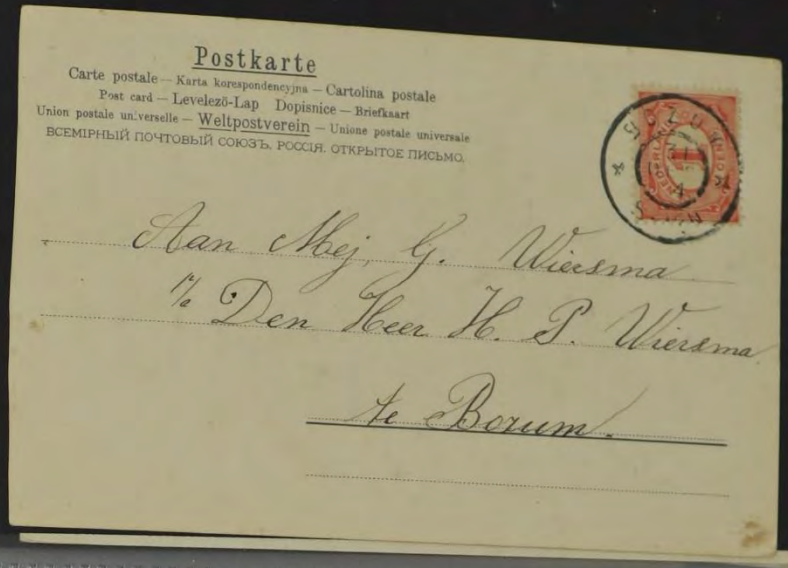 Postkarte
Carte postale — Karta korespondencyjna — Cartolina postale
Post card — Levelező-Lap Dopisnice — Briefkaart
Union postale universelle — Weltpostverein — Unione postale universale
ВСЕМІРНЫЙ ПОЧТОВЫЙ СОЮЗЪ. РОССІЯ. ОТКРЫТОЕ ПИСЬМО.
Aan Mej. G. Wiersma
p/a Den Heer H. P. Wiersma
te Bornum.